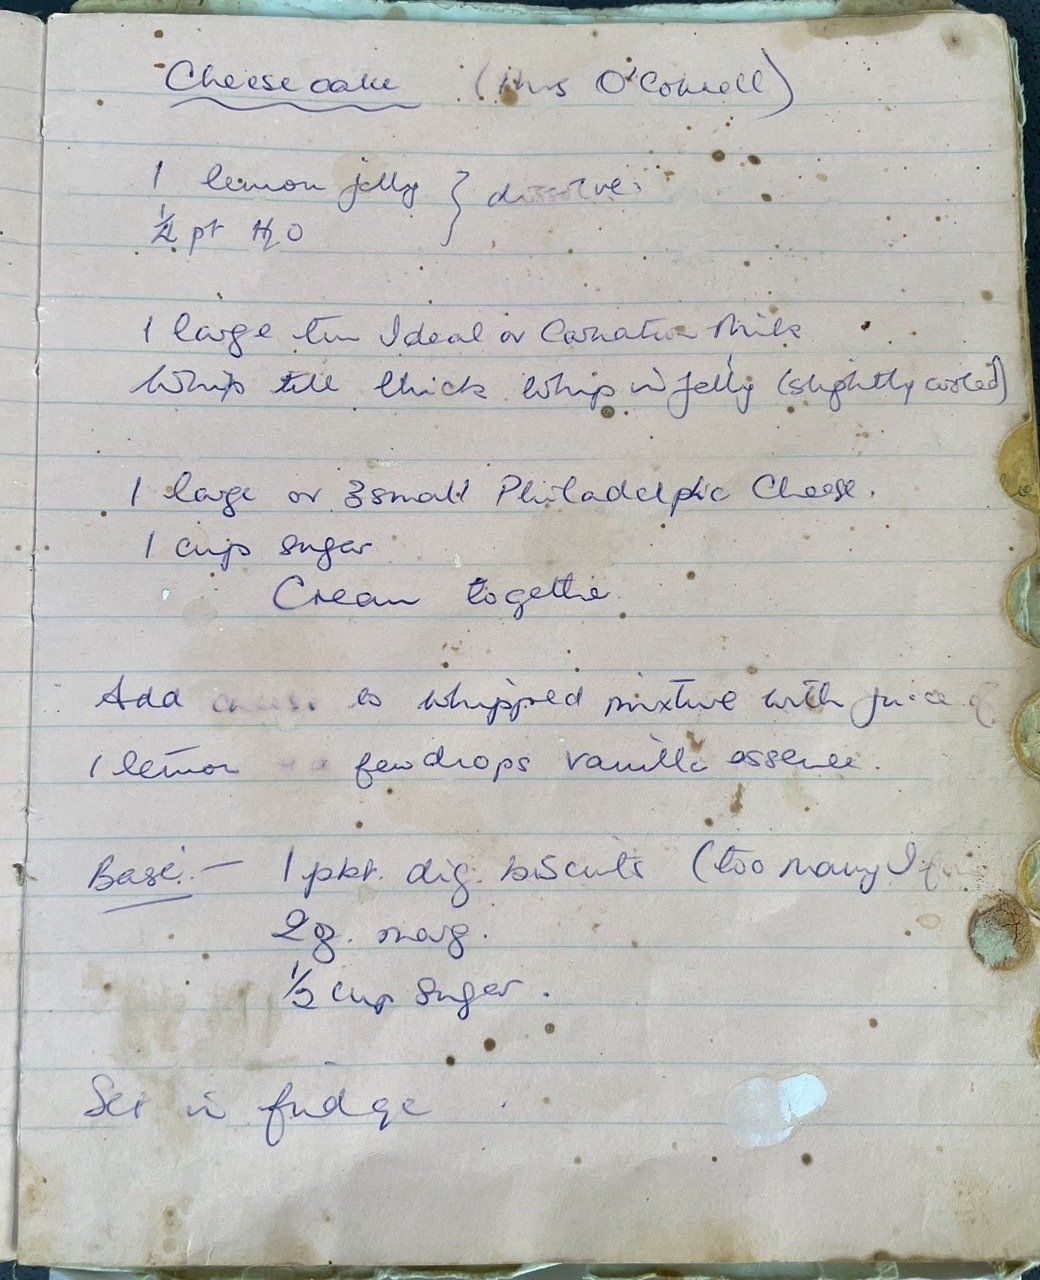 Cheesecake (Mrs O'Connell)
1 lemon jelly } dissolve.
½ pt H2O
1 large tin Ideal or Carnation Milk
Whip till thick whip in jelly (slightly cooled)
1 large or 3 small Philadelphia Cheese.
1 cup sugar
Cream together
Add cheese to whipped mixture with juice of
1 lemon few drops vanilla essence.
Base:- 1 pkt. dig. biscuits (too many I
2 oz. marg.
½ cup sugar.
Set in fridge